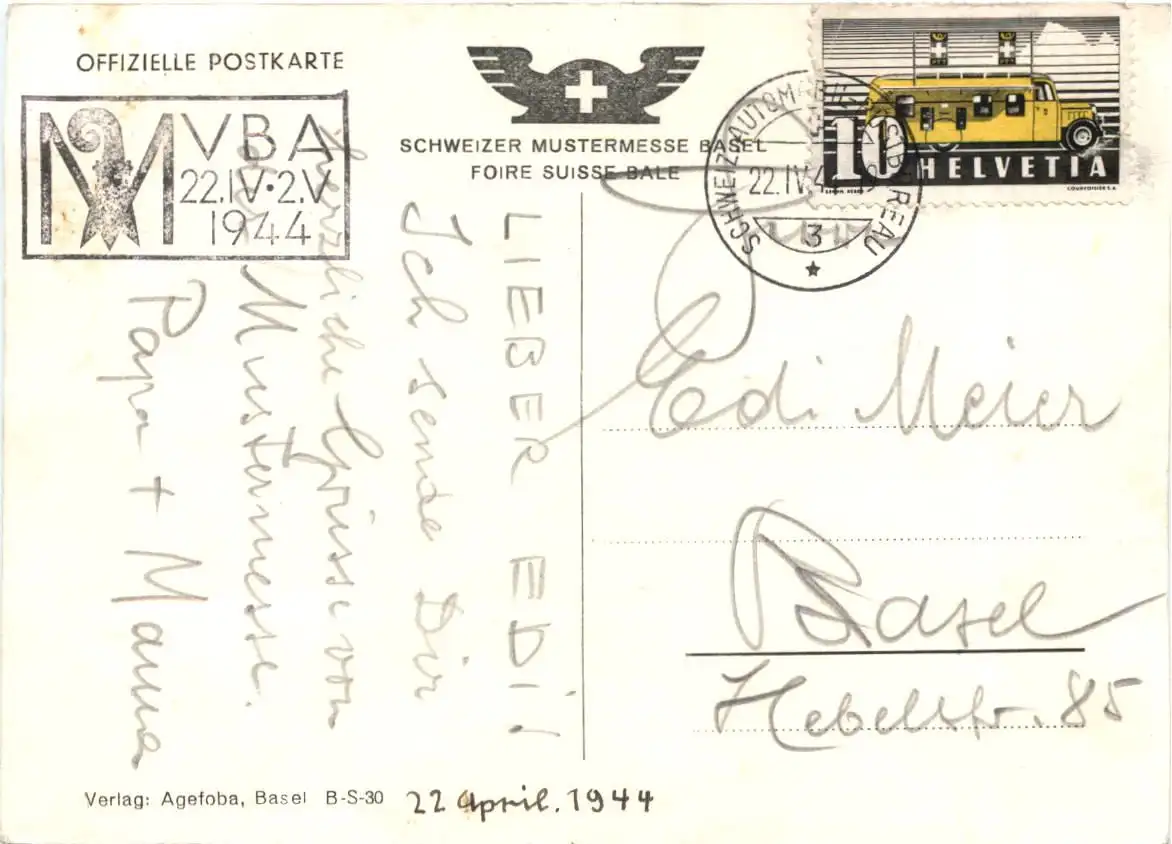 OFFIZIELLE POSTKARTE
VBA
22.IV•2.V
1944
SCHWEIZER MUSTERMESSE BASEL
FOIRE SUISSE BALE
SCHWEIZ. AUTOMOBIL
REAU
22.IV.4
3
10 HELVETIA
COURVOISIER S.A.
LIEBER EDI!
Ich sende Dir
herzliche Grüsse von
der Mustermesse.
Papa + Mama
Edi Meier
Basel
Hebelstr. 85
Verlag: Agefoba, Basel B-S-30
22 April. 1944